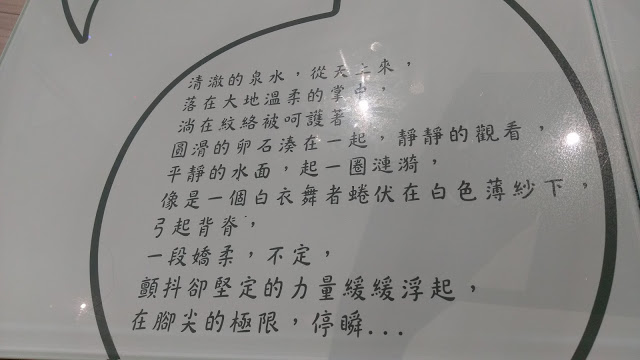 清澈的泉水，從天上來，
落在大地溫柔的掌中，
淌在紋絡被呵護著
圓滑的卵石湊在一起，靜靜的觀看，
平靜的水面，起一圈漣漪，
像是一個白衣舞者蜷伏在白色薄紗下，
弓起背脊，
一段嬌柔，不定，
顫抖卻堅定的力量緩緩浮起，
在腳尖的極限，停瞬...